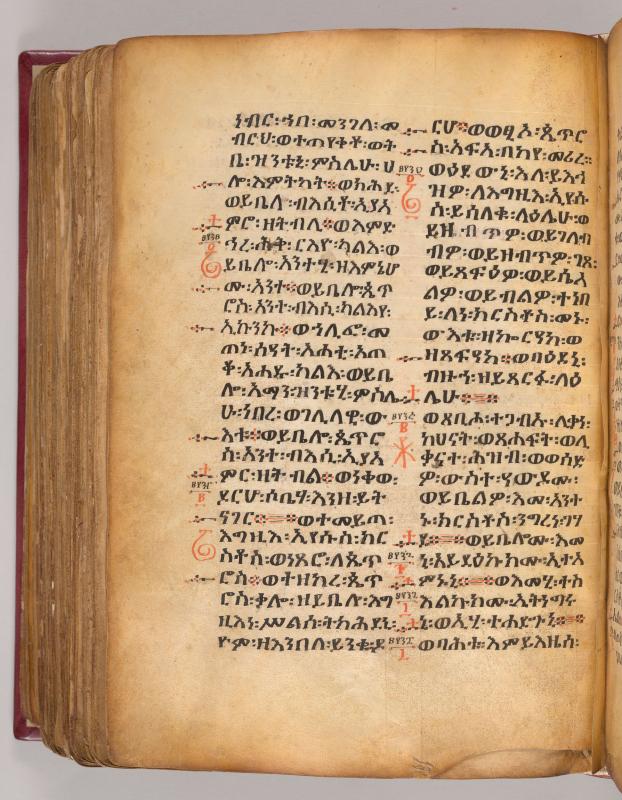 ነብር፡ኀበ፡መንገለ፡መ
ብርሀ፡ወተጠየቀቶ፡ወት
ቤ፡ዝንቱኒ፡ምስሌሁ፡ሀ
ሎ፡እምትካት፨ወክሕደ፡
ወይቤላ፡ብእሲቶ፡ኢያአ
ምሮ፡ዘትብሊ፨ወእምድ
ኅረ፡ሕቅ፡ርእዮ፡ካልእ፡ወ
ይቤሎ፡አንተሂ፡ዘእምኔሆ
ሙ፡አንተ፨ወይቤሎ፡ጴጥ
ሮስ፡አንተ፡ብእሲ፡ካልእየ፡
ኢኮንኩ፨ወኀሊፎ፡መ
ጠነ፡ሰዓት፡አሐቲ፡አጠ
ቆ፡አሐዱ፡ካልእ፡ወይቤ
ሎ፡አማን፡ዝንቱሂ፡ምስሌ
ሁ፡ነበረ፡ወገሊላዊ፡ው
እቱ፨ወይቤሎ፡ጴጥሮ
ስ፡አንተ፡ብእሲ፡ኢያአ
ምር፡ዘትብል፨ወነቀወ፡
ዶርሆ፡ሶቤሃ፡እንዘ፡ይት
ናገር፨ወተመይጠ፡
እግዚእ፡ኢየሱስ፡ክር
ስቶስ፡ወነጸሮ፡ለጴጥ
ሮስ፨ወተዘከረ፡ጴጥ
ሮስ፡ቃሎ፡ዘይቤሎ፡እግ
ዚእነ፡ሥልሰ፡ትክሕደኒ፡
ዮም፡ዘእንበለ፡ይንቁ፡ዶ
ርሆ፨ወወፂኦ፡ጴጥሮ
ስ፡አፍአ፡በከየ፡መሪረ፨
ወዕደውኒ፡እለ፡ይእኅ
ዝዎ፡ለእግዚእ፡ኢየሱ
ስ፡ይሳለቁ፡ላዕሌሁ፡ወ
ይዘብጥዎ፡ወይገለብ
ብዎ፡ወይዘብጥዎ፡ገጾ፡
ወይጸፍዕዎ፡ወይሴአ
ልዎ፡ወይብልዎ፡ተነበ
ይ፡ለነ፡ክርስቶስ፡መኑ፡
ውእቱ፡ዘኰርዓከ፡ወ
ዘጸፍዓከ፨ወባዕደኒ፡
ብዙኅ፡ዘይጸርፉ፡ላዕ
ሌሁ፨
ወጸቢሖ፡ተጋብኡ፡ሊቃነ፡
ካህናት፡ወጸሐፍት፡ወሊ
ቃናተ፡ሕዝብ፡ወወሰድ
ዎ፡ውስተ፡ዓውዶሙ፡
ወይቤልዎ፡እመ፡አንተ
ኑ፡ክርስቶስ፡ንግረነ፡ገሃ
ደ፨ወይቤሎሙ፡እመ
ኒ፡አይዳዕኩክሙ፡ኢተአ
ምኑኒ፨ወእመሂ፡ተስ
እልኩክሙ፡ኢትነግሩ
ኒ፡ወኢሂ፡ተሐድጉኒ፨
ወባሕቱ፡እምይእዜሰ፡